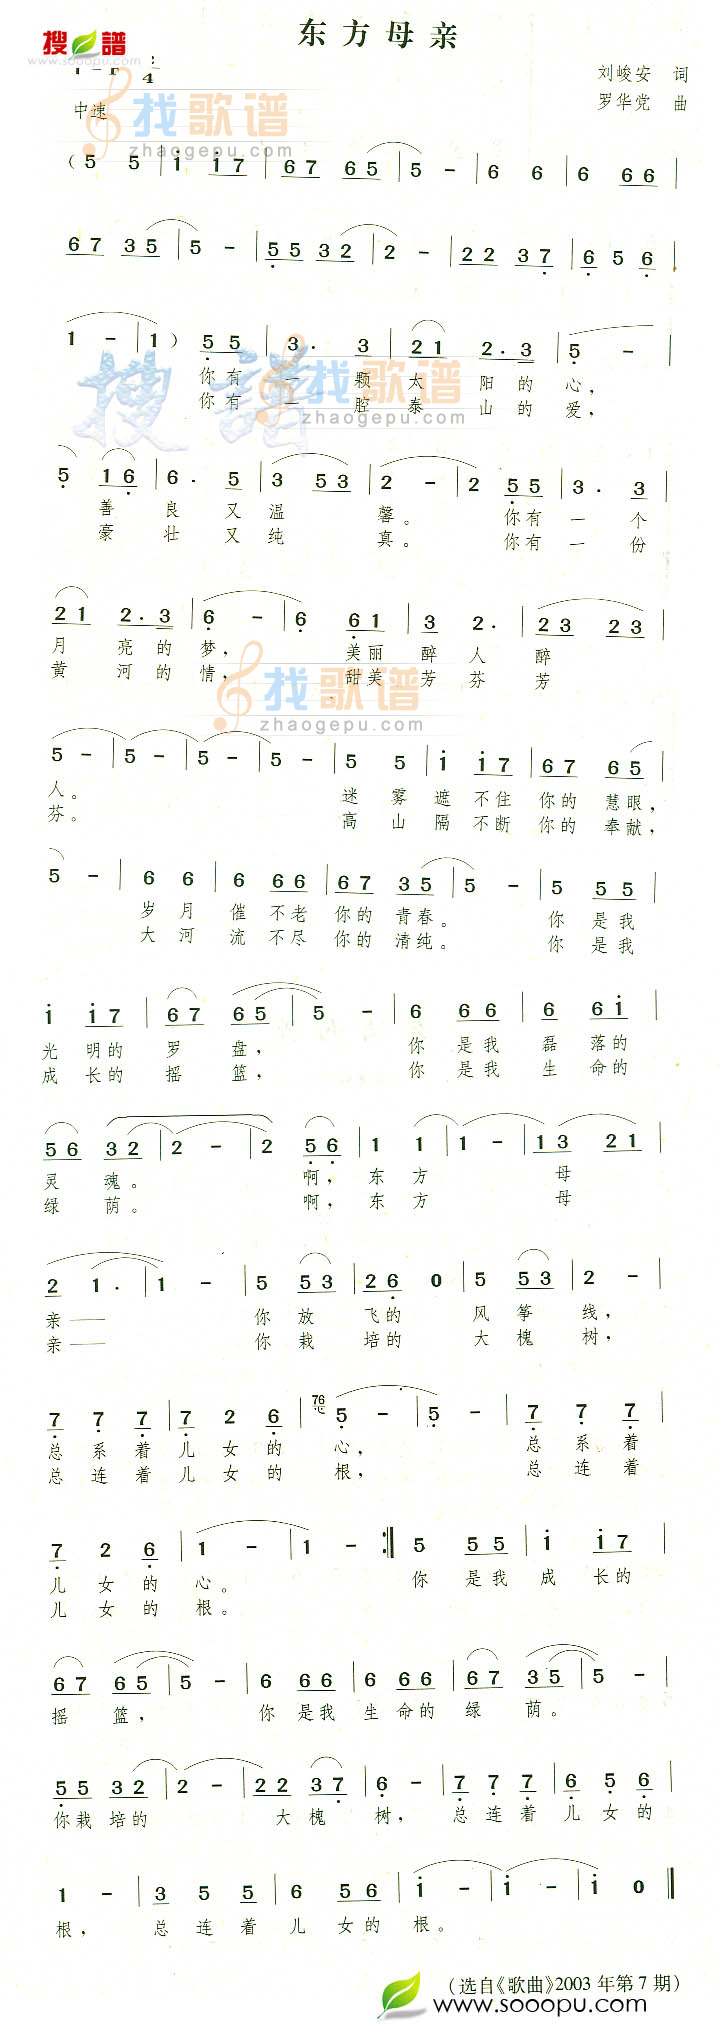 搜谱
www.sooopu.com
东方母亲
刘峻安 词
罗华党 曲
中速
找歌谱
zhaogepu.com
( 5 5 | i i7 | 67 65 | 5 - | 6 6 | 6 66 |
67 35 | 5 - | 55 32 | 2 - | 22 37 | 6 5 6 |
1 - | 1 ) 55 | 3. 3 | 21 2.3 | 5 - |
你有一颗太阳的心,
你有一腔泰山的爱,
搜谱
找歌谱
zhaogepu.com
5 16 | 6. 5 | 3 53 | 2 - | 2 55 | 3. 3 |
善良又温馨。你有一个
豪壮又纯真。你有一份
21 2.3 | 6 - | 6 61 | 3 2. | 23 23 |
月亮的梦,美丽醉人醉
黄河的情,甜美芳芬芳
找歌谱
zhaogepu.com
5 - | 5 - | 5 - | 5 - | 5 5 | i i7 | 67 65 |
人。迷雾遮不住你的慧眼,
芬。高山隔不断你的奉献,
5 - | 6 6 | 6 66 | 67 35 | 5 - | 5 55 |
岁月催不老你的青春。你是我
大河流不尽你的清纯。你是我
i i7 | 67 65 | 5 - | 6 66 | 6 6i |
光明的罗盘,你是我磊落的
成长的摇篮,你是我生命的
56 32 | 2 - | 2 56 | 1 1 | 1 - | 13 21 |
灵魂。啊,东方母
绿荫。啊,东方母
2 1. | 1 - | 5 53 | 26 0 | 5 53 | 2 - |
亲——你放飞的风筝线,
亲——你栽培的大槐树,
7 7 7 | 7 2 6 | 76 5 - | 5 - | 7 7 7 |
总系着儿女的心,总系着
总连着儿女的根,总连着
7 2 6 | 1 - | 1 - :‖ 5 55 | i i7 |
儿女的心。你是我成长的
儿女的根。
67 65 | 5 - | 6 66 | 6 66 | 67 35 | 5 - |
摇篮,你是我生命的绿荫。
55 32 | 2 - | 22 37 | 6 - | 7 7 7 | 6 5 6 |
你栽培的大槐树,总连着儿女的
1 - | 3 5 5 | 6 56 | i - | i - | i 0 ‖
根,总连着儿女的根。
(选自《歌曲》2003年第7期)
www.sooopu.com